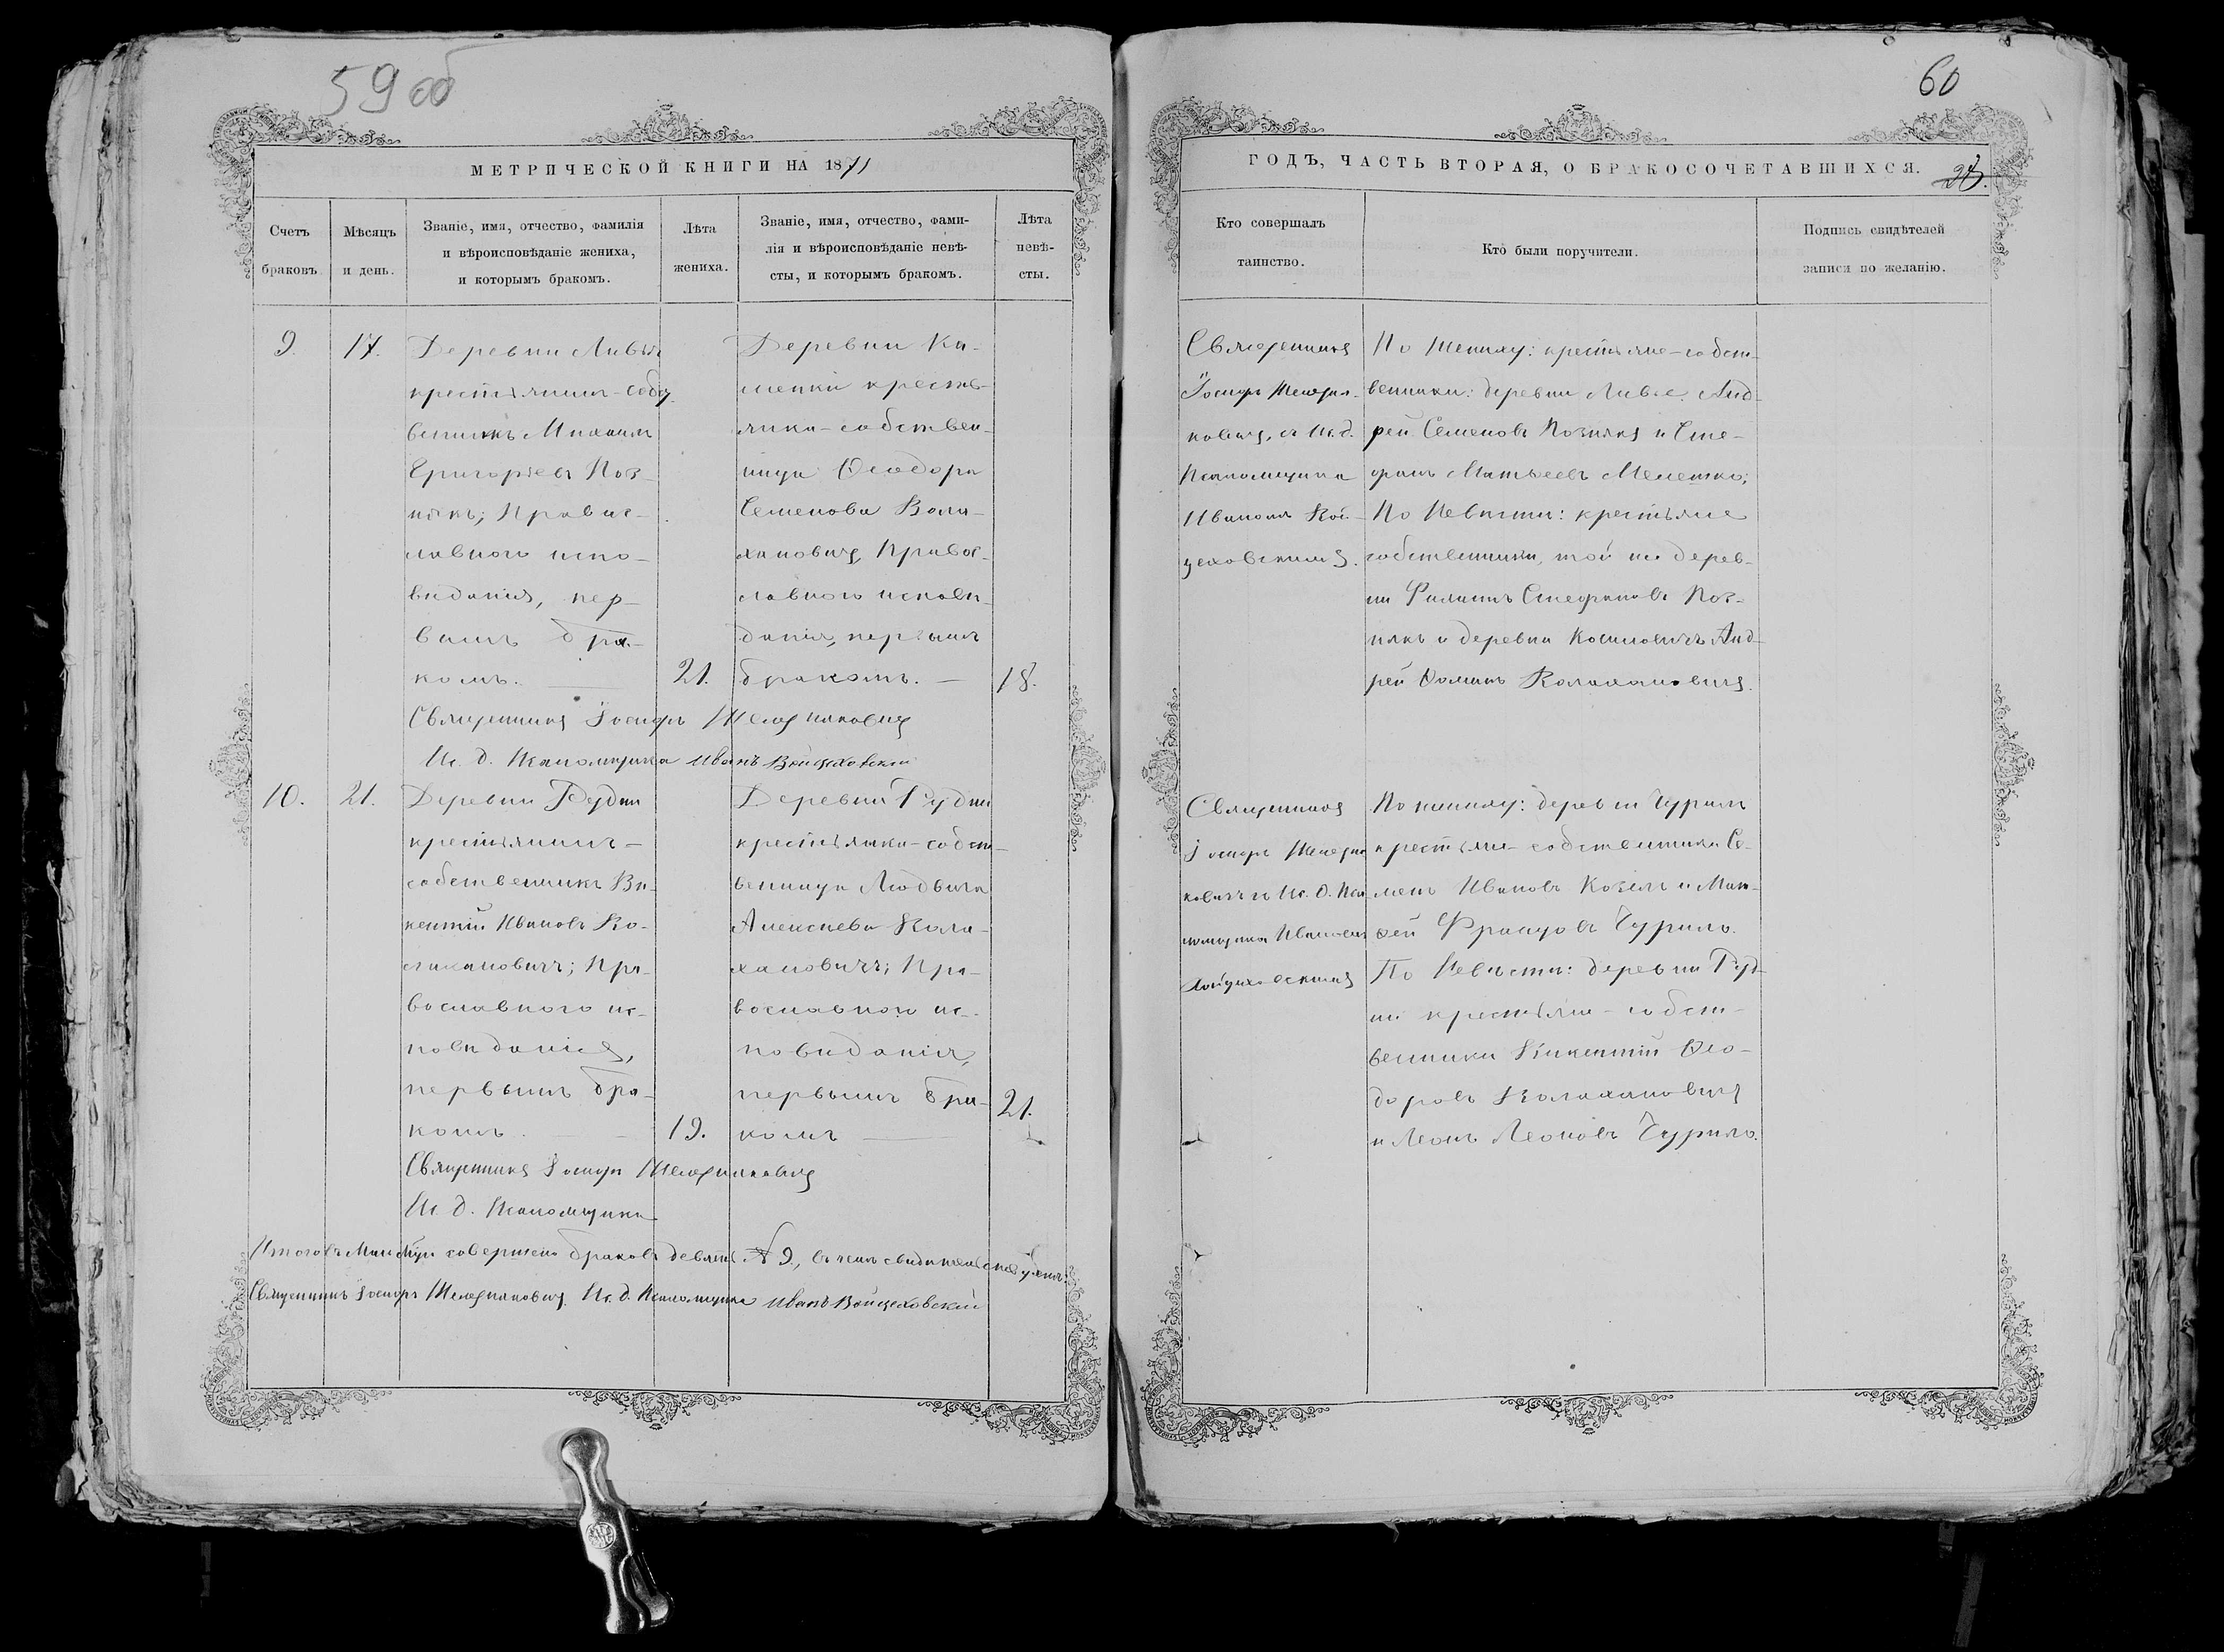 59 об
МЕТРИЧЕСКОЙ КНИГИ НА 1871
Счетъ
браковъ.
Мѣсяцъ
и день.
Званіе, имя, отчество, фамилія
и вѣроисповѣданіе жениха,
и которымъ бракомъ.
Лѣта
жениха.
Званіе, имя, отчество, фами-
лія и вѣроисповѣданіе невѣ-
сты, и которымъ бракомъ.
Лѣта
невѣ-
сты.
9.
17.
Деревни
крестьянинъ-собст
венникъ Михаилъ
Григорьевъ Поз-
някъ; Правос-
лавнаго испо-
вѣданія, пер-
вымъ бра-
комъ.
21.
Деревни Ка-
менки кресть-
янка-собствен-
ница Ѳеодора
Семенова Кола-
хановичъ, Правос-
лавнаго исповѣ-
данія, первымъ
бракомъ.
18.
Священникъ Іосифъ
И. д. Псаломщика Иванъ Войцеховскій
10.
21.
Деревни Рудни
крестьянинъ-
собственникъ Ви-
кентій Ивановъ Ко-
лахановичъ; Пра-
вославнаго ис-
повѣданія,
первымъ бра-
комъ.
19.
Деревни Рудни
крестьянка-собст-
венница Людвига
Алексѣева Кола-
хановичъ; Пра-
вославнаго ис-
повѣданія,
первымъ бра-
комъ
21.
Священникъ Іосифъ
И. д. Псаломщика
совершено браковъ девять № 9, въ чемъ
Священникъ Іосифъ И. д. Псаломщика Иванъ Войцеховскій
60
ГОДЪ, ЧАСТЬ ВТОРАЯ, О БРАКОСОЧЕТАВШИХСЯ.
Кто совершалъ
таинство.
Кто были поручители.
Подпись свидѣтелей
записи по желанію.
Священникъ
Іосифъ
съ И. д.
Псаломщика
Иваномъ Вой-
цеховскимъ.
По Жениху: крестьяне-собст-
венники: деревни Анд-
рей Семеновъ Познякъ и Сте-
фанъ Матвеевъ Мелешко;
По Невѣсти: крестьяне
собственники, той же дерев-
ни Филипъ Стефановъ Поз-
някъ и деревни Анд-
рей Ѳоминъ Колахановичъ.
Священникъ
Іосифъ
съ И. д. Пса
ломщика Иваномъ
Войцеховскимъ
По жениху: деревни Чурилъ
крестьяне-собственники Се-
менъ Ивановъ Козелъ и Мат-
ѳей Францовъ Чурило.
По Невѣсти: деревни Руд-
ни крестьяне-собст-
венники Викентій Ѳео-
доровъ Колахановичъ
и Леонъ Леоновъ Чурило.